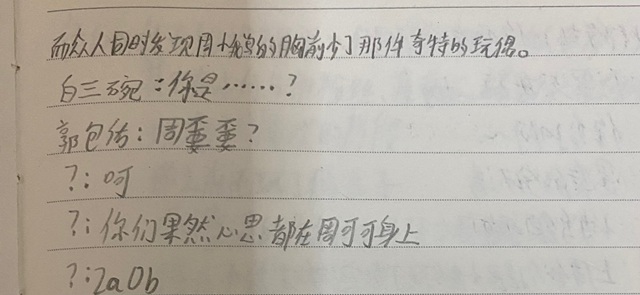 而众人同时发现周小鸳的胸前少了那件奇特的玩偶。
白三碗:你是……?
郭包佑:周委委?
?:呵
?:你们果然心思都在周可可身上
?:2a0b